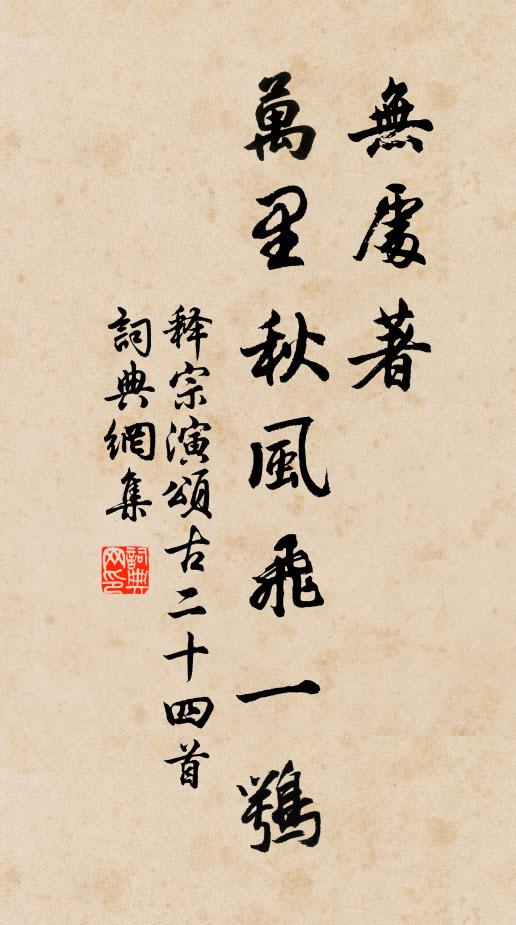 無處著
萬里秋風飛一鶚
释宗演頌古二十四首
詞典網集
詞典网印